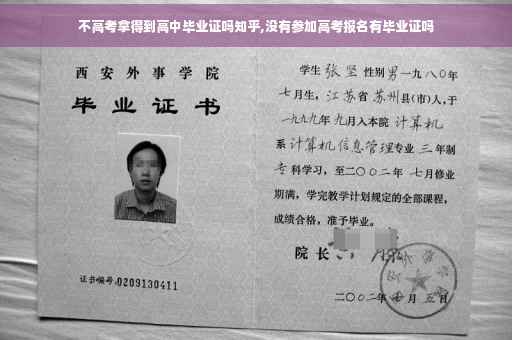 不高考拿得到高中毕业证吗知乎,没有参加高考报名有毕业证吗
西安外事学院
毕业证书
证书编号:0209130411
学生 张坚 性别男一九八〇年
七月生，江苏省 苏州县(市)人,于
一九九九年 九月入本院 计算机
系计算机信息管理专业 三 年制
专科学习，至二〇〇二年 七月修业
期满，学完教学计划规定的全部课程，
成绩合格，准予毕业。
院长
二〇〇二年 七 月 五 日